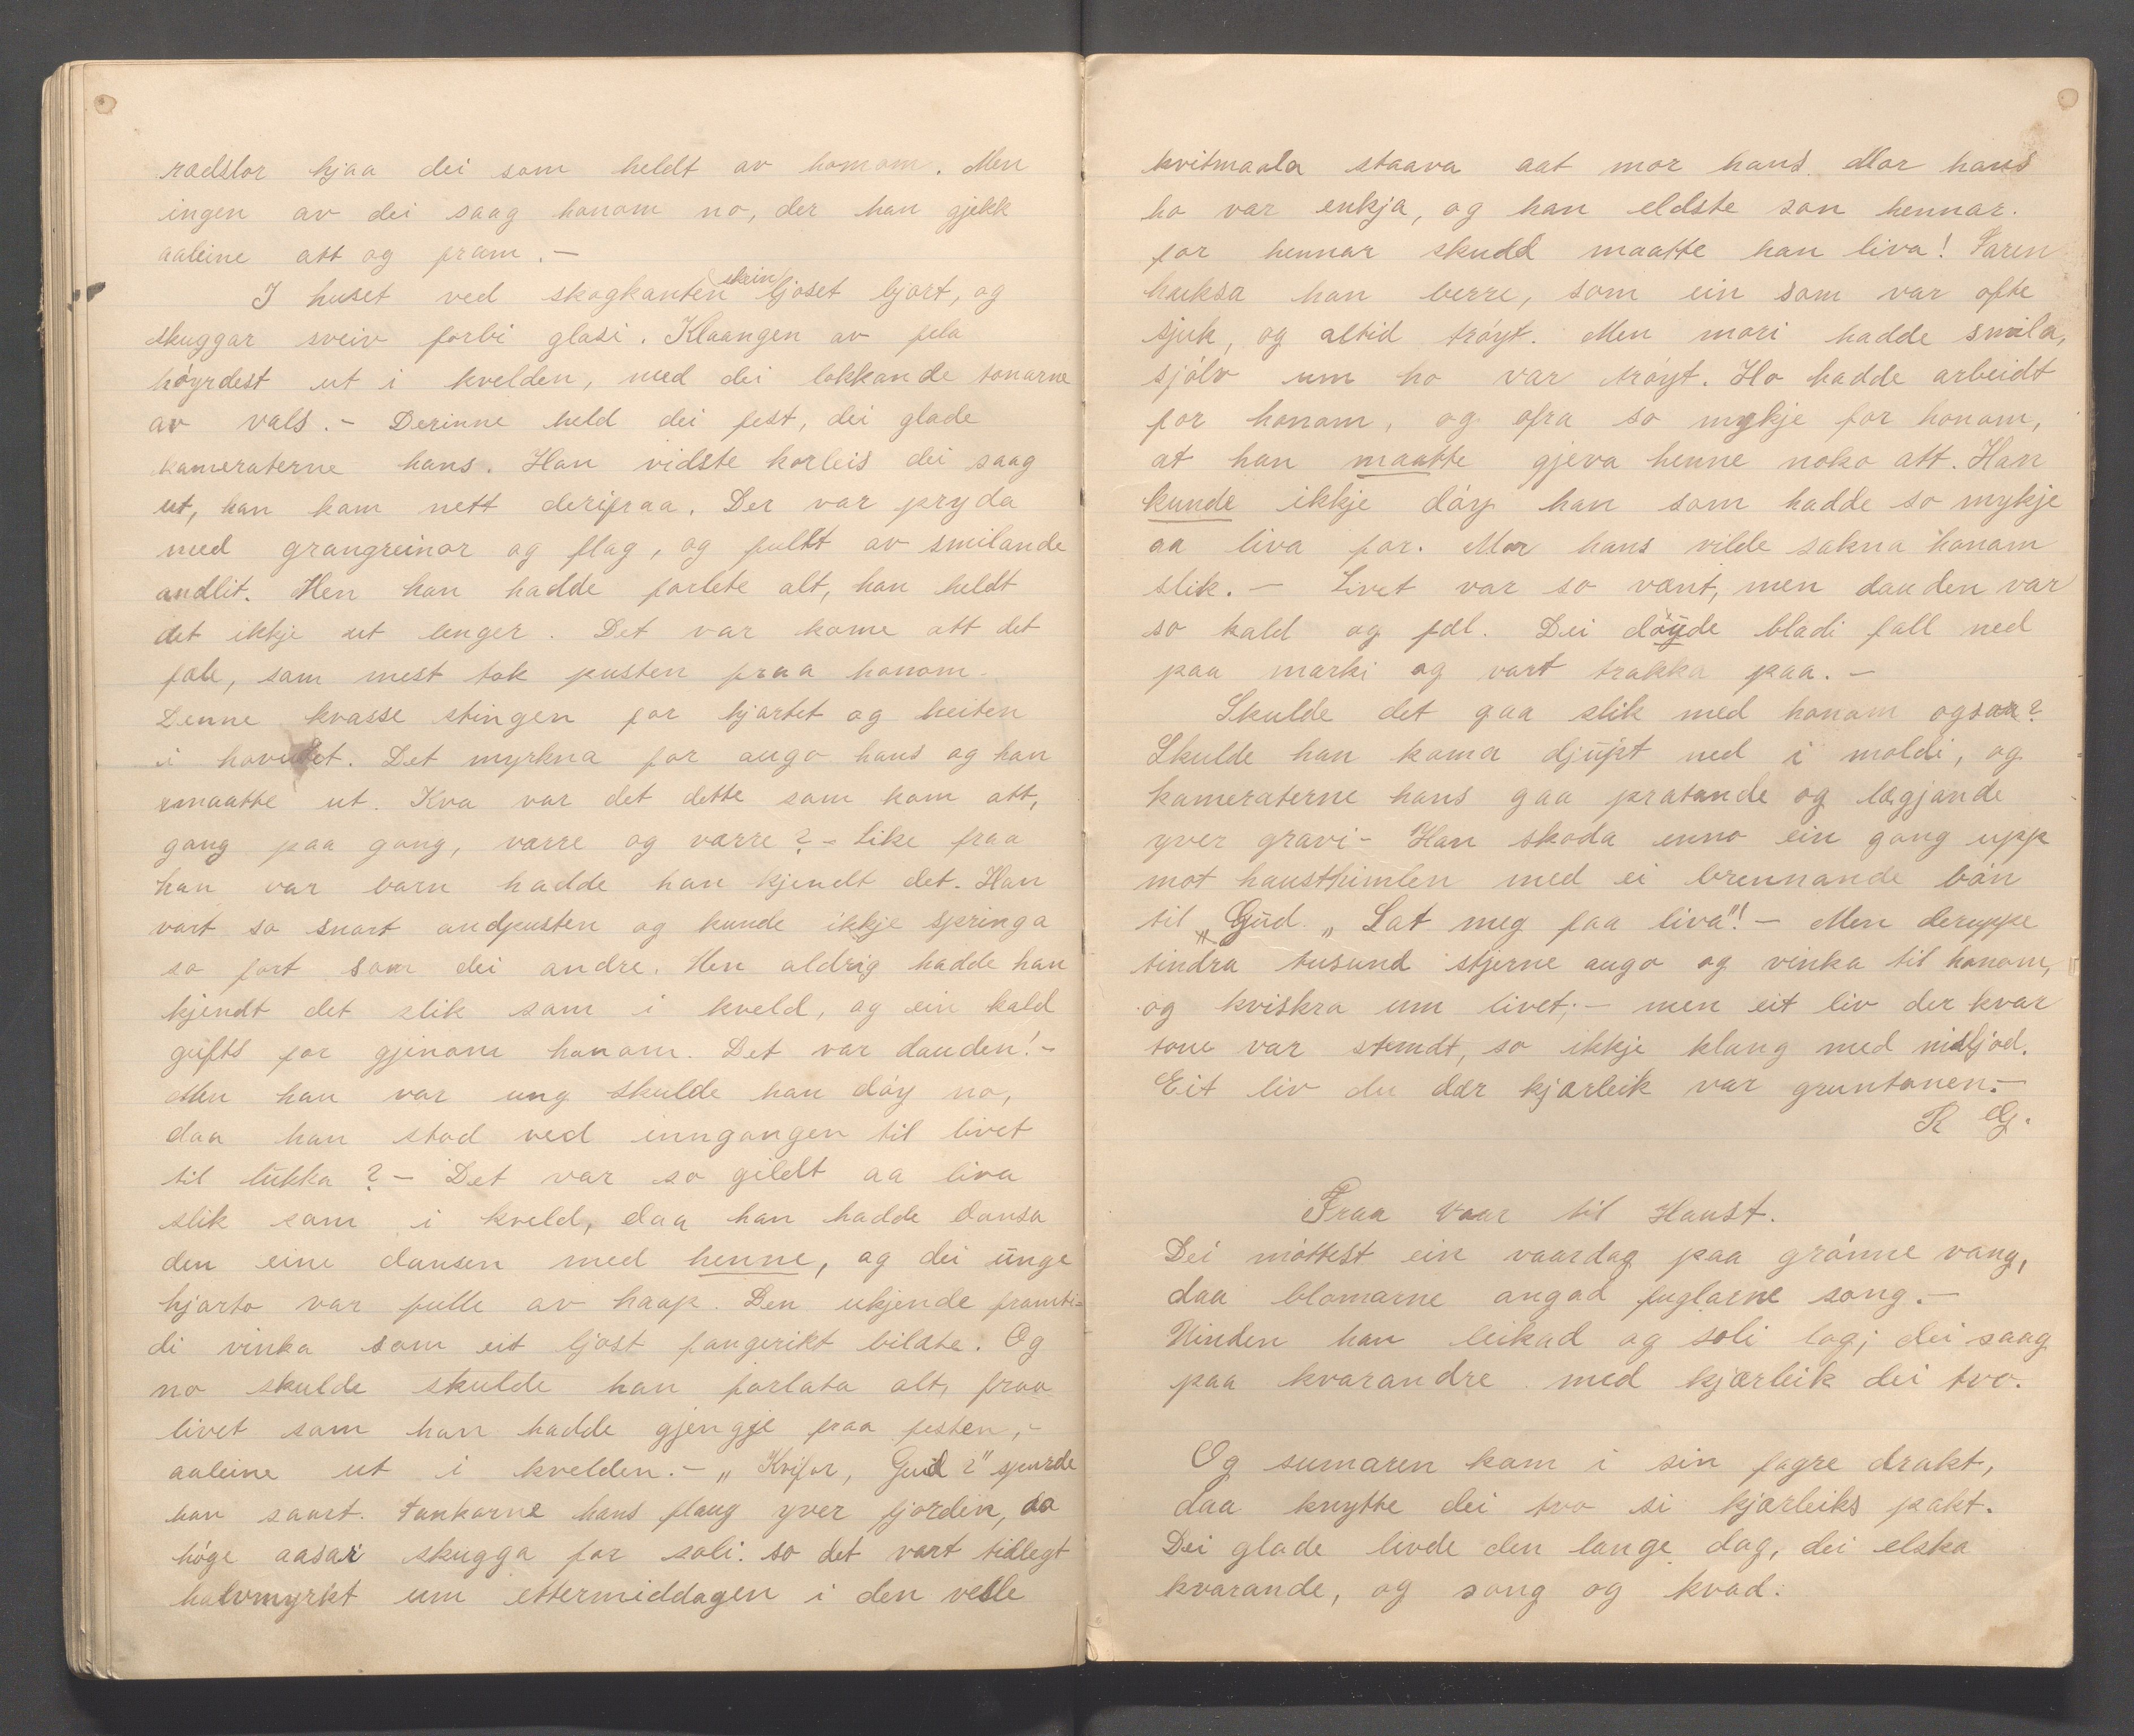 rædslor hjaa dei som heldt av honom. Men
ingen av dei saag honom no, der han gjekk
aaleine att og fram. –
I huset ved skogkanten skein ljoset bjart, og
skuggar sveiv forbi glasi. Klaangen av fela
höyrdest ut i kvelden, med dei lokkande tonarne
av vals. – Derinne held dei fest, dei glade
kameraterne hans. Han vidste korleis dei saag
ut, han kom nett derifraa. Der var pryda
med grangreinar og flag, og fullt av smilande
andlit. Men han hadde forlete alt, han heldt
det ikkje ut lenger. Det var kome att det
fæle, som mest tok pusten fraa honom.
Denne kvasse stingen for hjartet og heiten
i hovudet. Det myrkna for augo hans og han
maatte ut. Kva var det dette som kom att,
gang paa gang, værre og værre? – Like fraa
han var barn hadde han kjendt det. Han
vart so snart andpusten og kunde ikkje springa
so fort som dei andre. Men aldrig hadde han
kjendt det slik som i kveld, og ein kald
gufts for gjenom honom. Det var dauden! –
Men han var ung skulde han döy no,
daa han stod ved inngangen til livet
til lukka? – Det var so gildt aa liva
slik som i kveld, daa han hadde dansa
den eine dansen med henne, og dei unge
hjarto var fulle av haap. Den ukjende framti-
di vinka som eit ljost fangerikt bilæte. Og
no skulde skulde han forlata alt, fraa
livet som han hadde gjengje fraa festen, –
aaleine ut i kvelden. – „Kvifor, Gud?" spurde
han saart. Tankarne hans flaug yver fjorden, da
höge aasar skugga for soli. so det vart tidlegt
halvmyrkt um ettermiddagen i den vesle
kvitmaala staava aat mor hans. Mor hans
ho var enkja, og han eldste son hennar.
for hennar skudd maatte han liva! Faren
huksa han berre, som ein som var ofte
sjuk, og altid tröyt. Men mori hadde smila,
sjölv um ho var tröyt. Ho hadde arbeidt
for honom, og ofra so mykje for honom,
at han maatte gjeva henne noko att. Han
kunde ikkje döy han som hadde so mykje
aa liva for. Mor hans vilde sakna honom
slik. – Livet var so vænt, men dauden var
so kald og fæl. Dei döyde bladi fall ned
paa marki og vart trakka paa. –
Skulde det gaa slik med honom ogsaa?
Skulde han koma djupt ned i moldi, og
kameraterne hans gaa pratande og lægjande
yver gravi – Han skoda enno ein gong upp
mot hausthimlen med ei brennande bön
til Gud. „Lat meg faa liva"! – Men deruppe
tindra tusund stjerne augo og vinka til honom,
og kviskra um livet; – men eit liv der kvar
tone var stemdt, so ikkje klang med misljod.
Eit liv du dær kjærleik var gruntonen. –
R G.
Fraa Vaar til Haust.
Dei möttest ein vaardag paa grönne vang,
daa blomarne angad fuglarne song. –
Vinden han leikad og soli log; dei saag
paa kvarandre med kjærleik dei tvo.
Og sumaren kom i sin fagre drakt,
daa knytte dei tvo si kjærleiks pakt.
Dei glade livde den lange dag, dei elska
kvarande, og song og kvad.